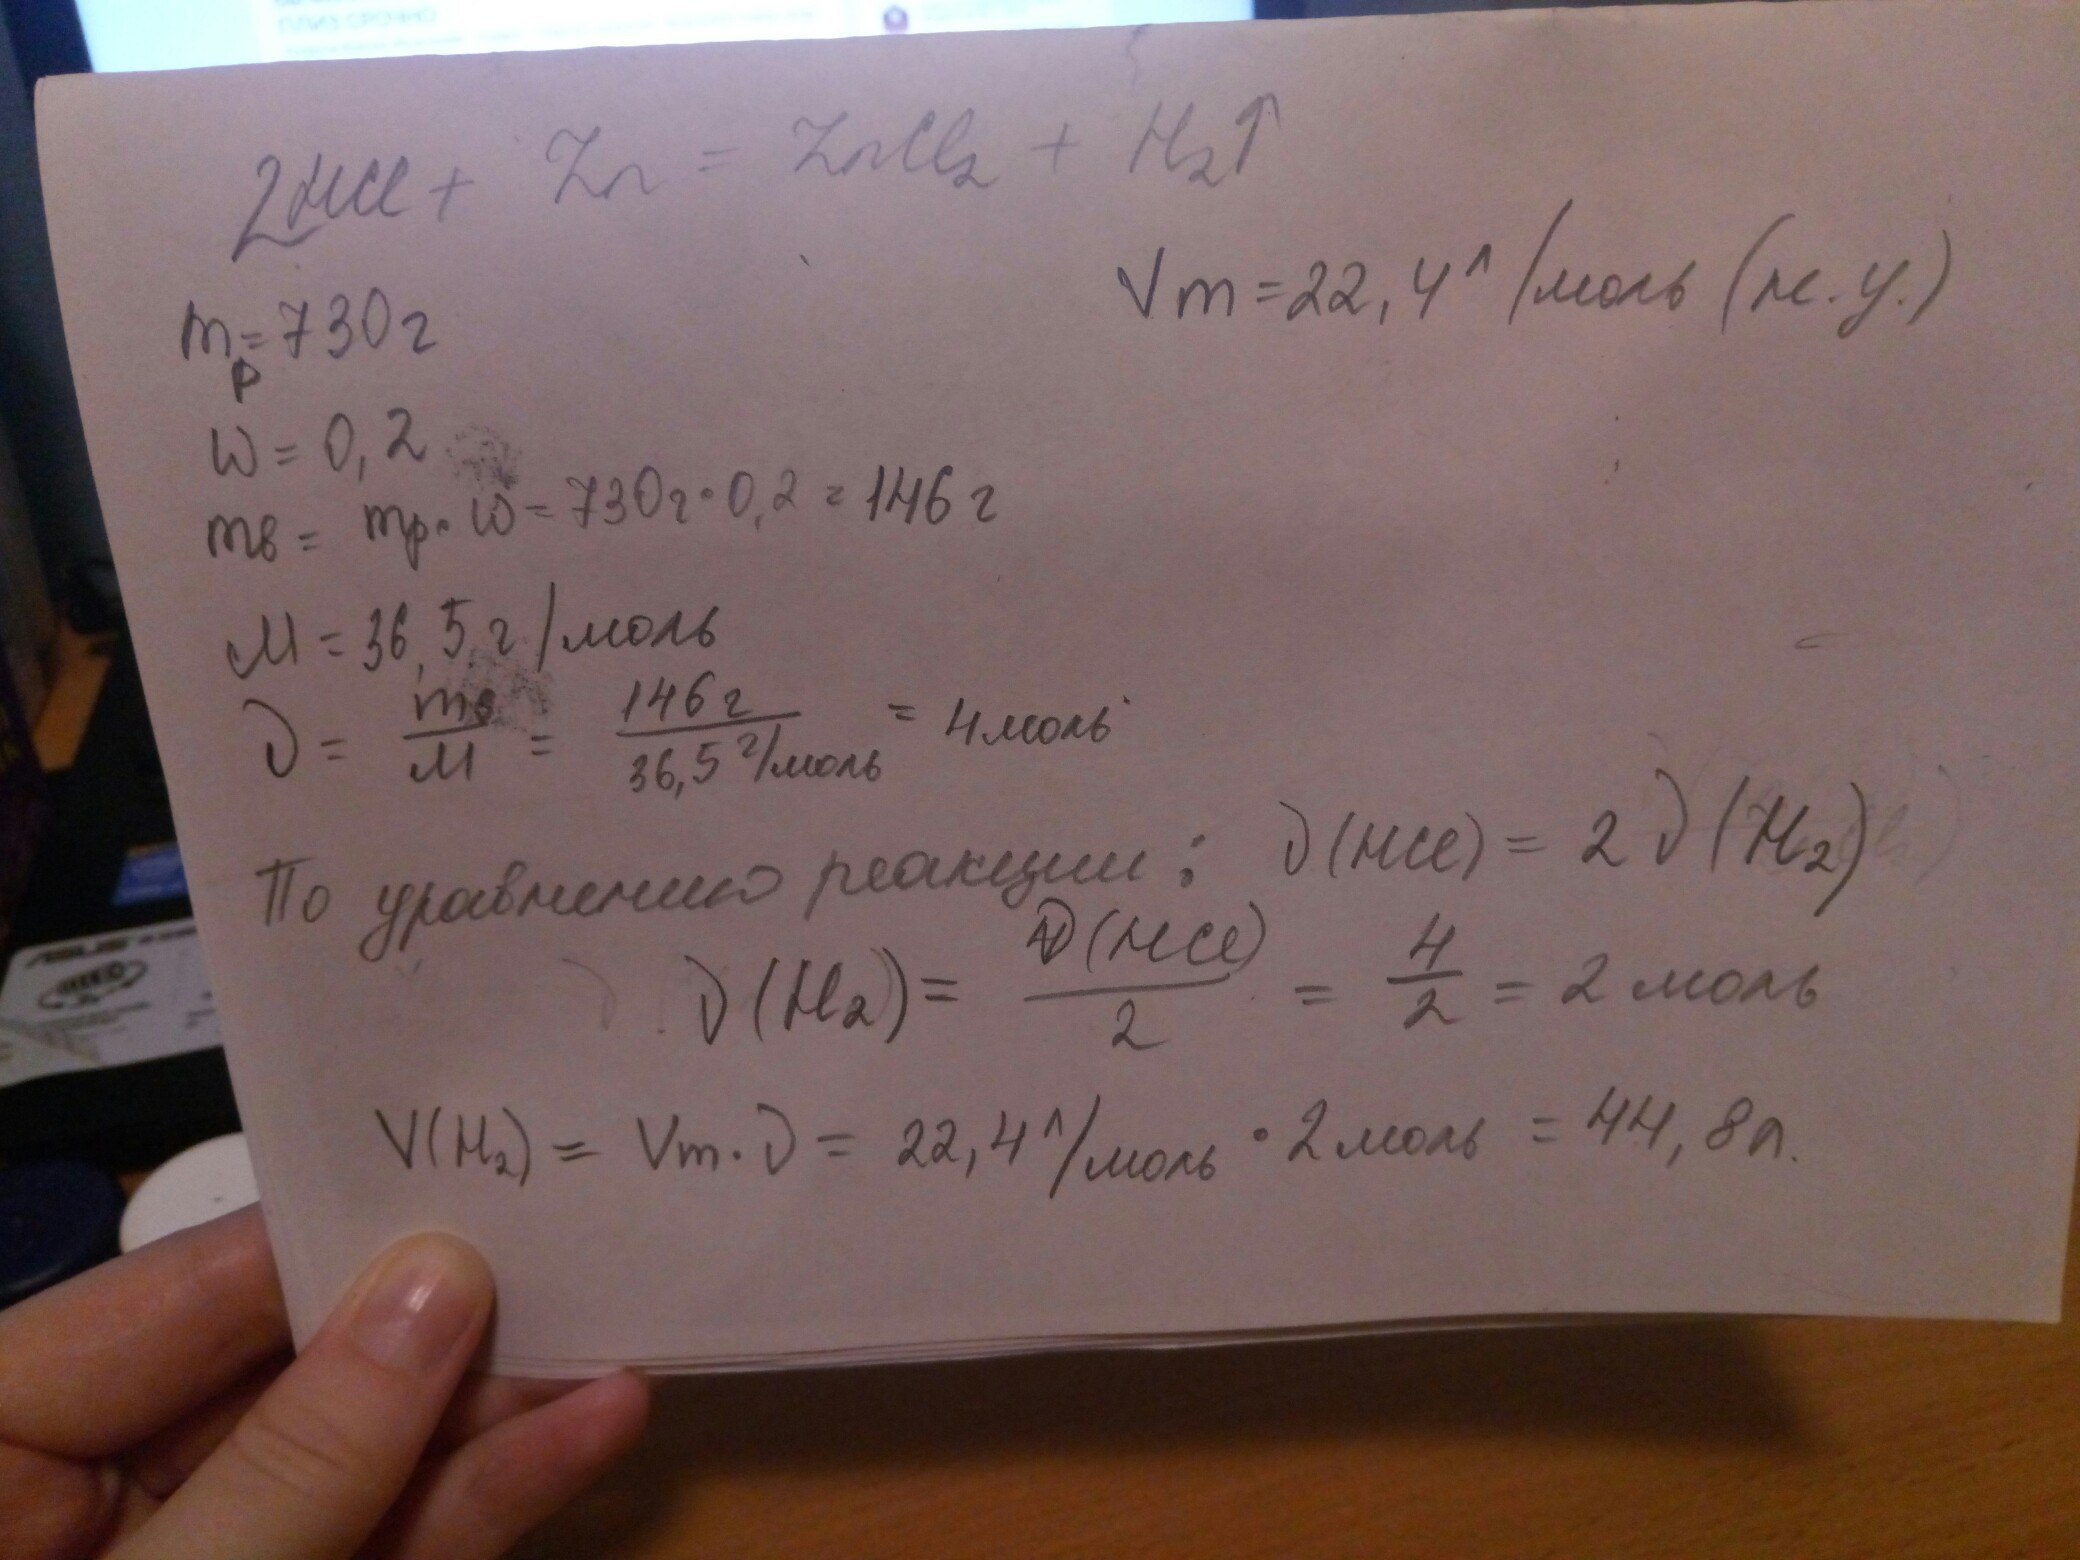 ПЛИЗ СРОЧНО
2HCl + Zn = ZnCl₂ + H₂↑
Vm = 22,4 л/моль (н.у.)
mр = 730 г
W = 0,2
mв = mр · W = 730 г · 0,2 = 146 г
M = 36,5 г/моль
ν = mв/M = 146 г / 36,5 г/моль = 4 моль
По уравнению реакции : ν(HCl) = 2 ν(H₂)
ν(H₂) = ν(HCl)/2 = 4/2 = 2 моль
V(H₂) = Vm · ν = 22,4 л/моль · 2 моль = 44,8 л.
ASUS